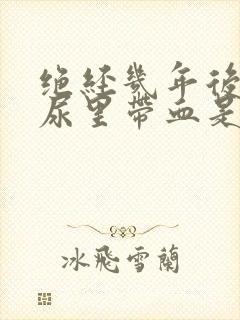 绝经几年後
尿里带血是
冰飛雪蘭